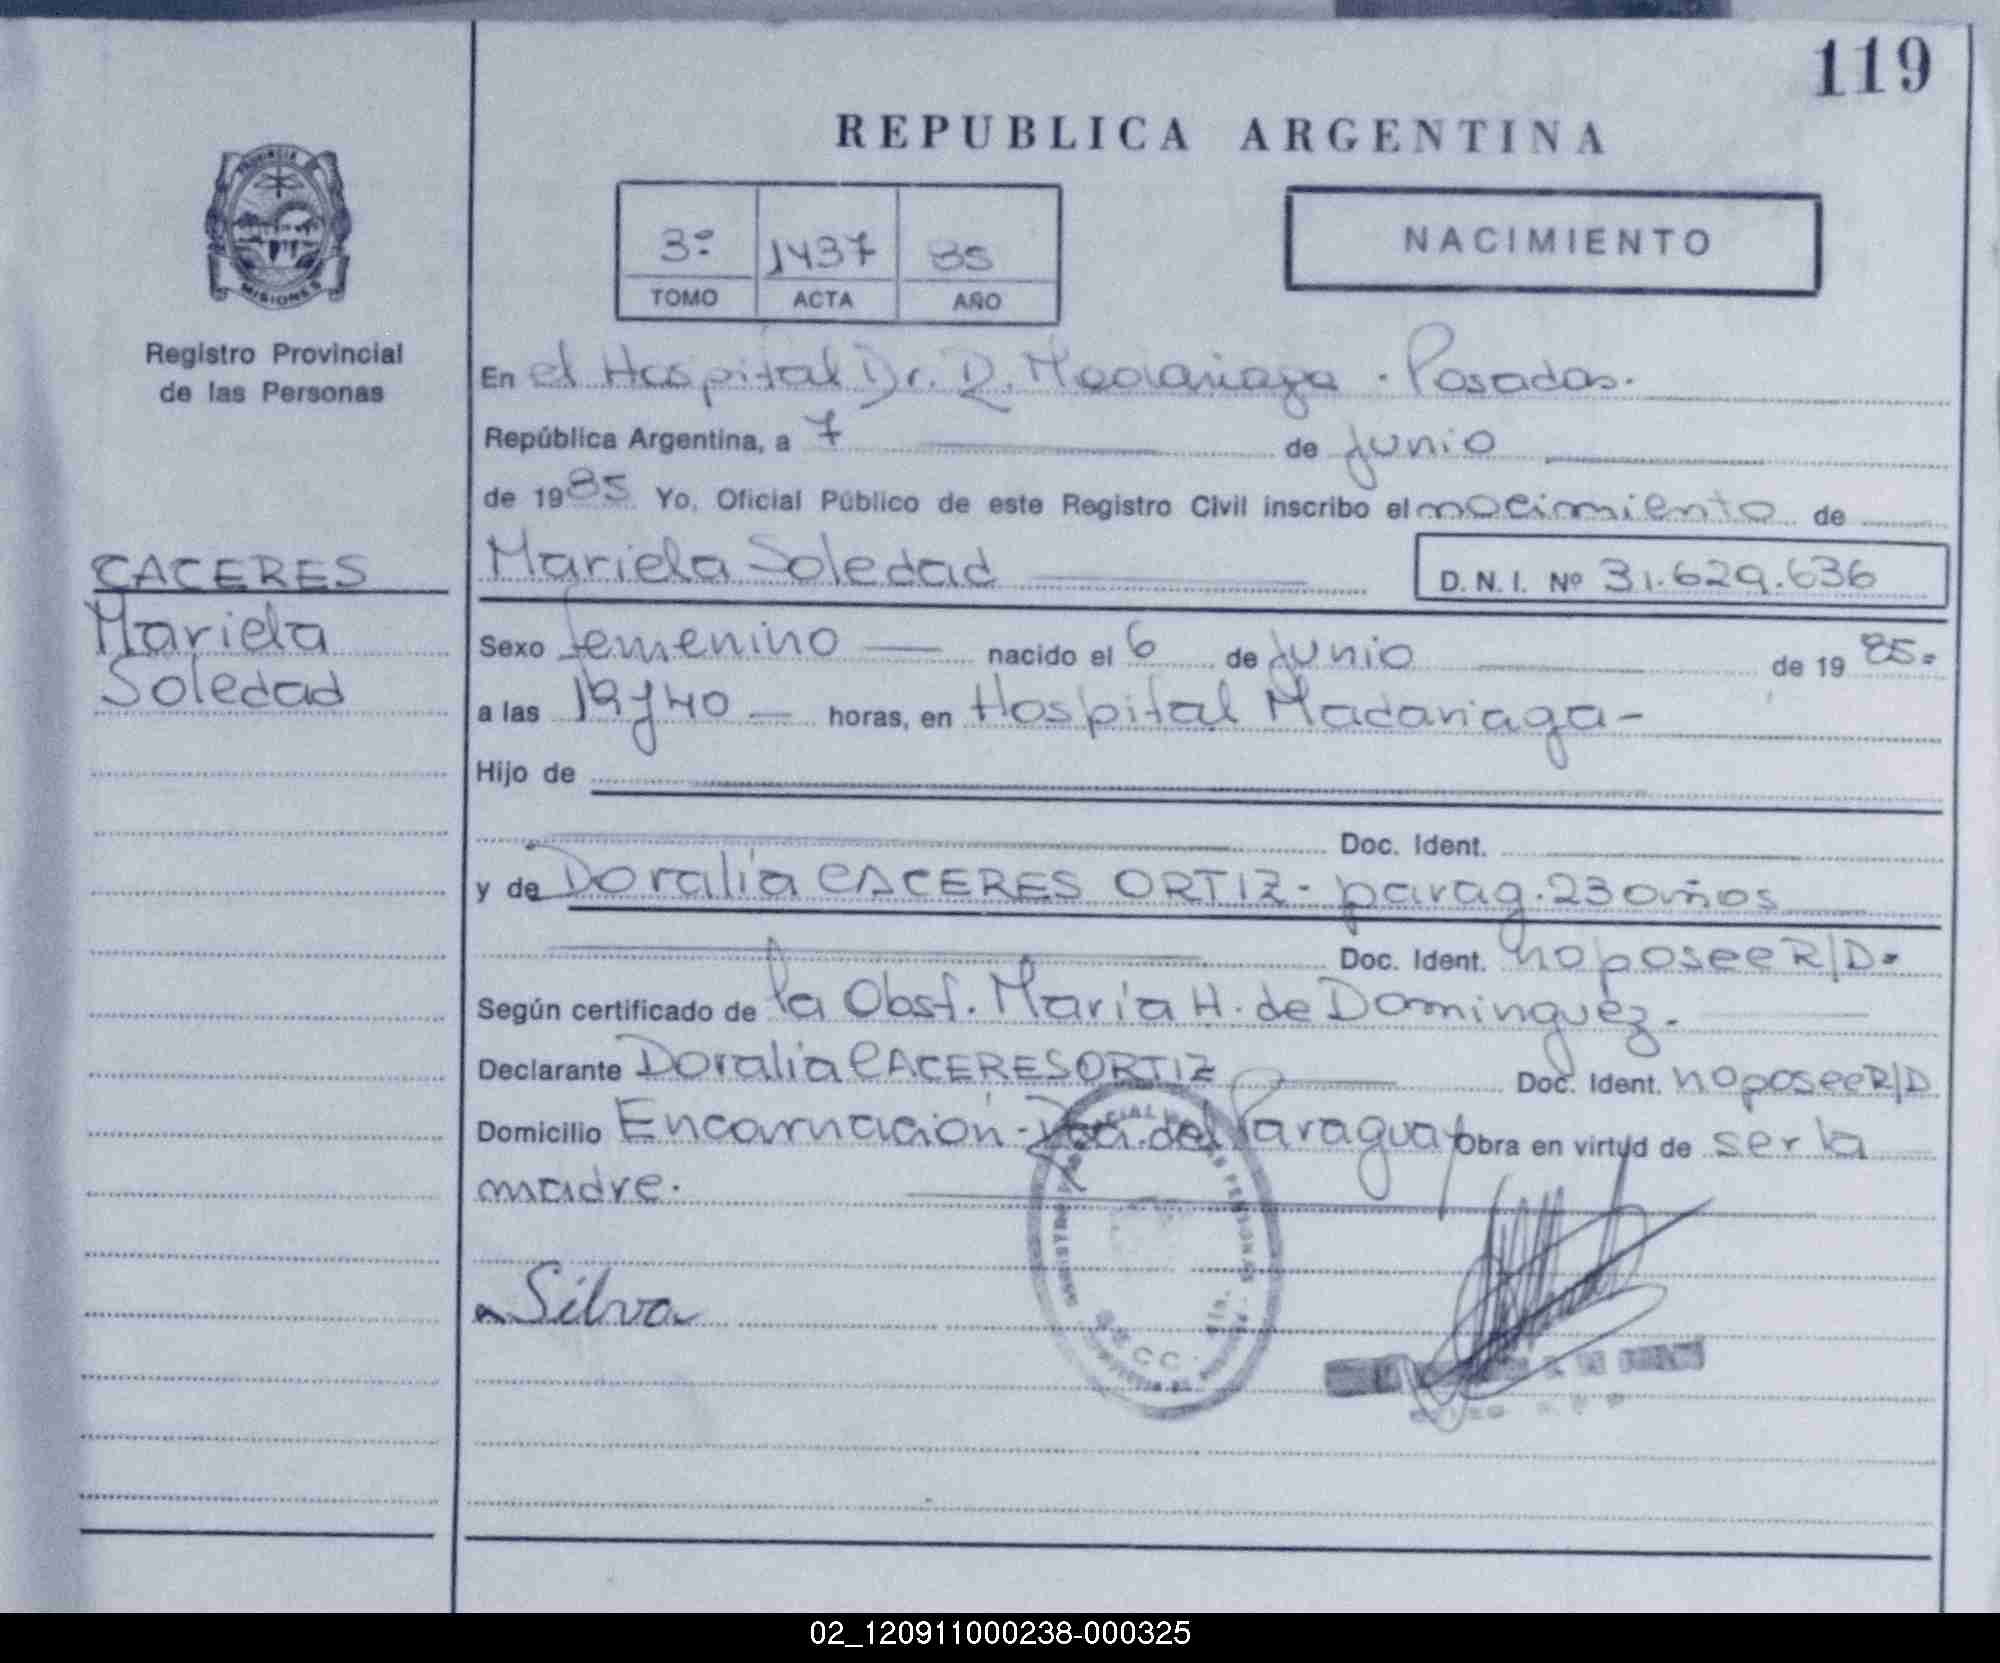 119
REPUBLICA ARGENTINA
PROVINCIA
MISIONES
Registro Provincial
de las Personas
3º 1437 85
TOMO ACTA AÑO
NACIMIENTO
En el Hospital Dr. R. Madariaga . Posadas.
República Argentina, a 7 de junio
de 1985 Yo, Oficial Público de este Registro Civil inscribo el nacimiento de
Mariela Soledad D. N. I. Nº 31.629.636
CACERES
Mariela
Soledad
Sexo femenino nacido el 6 de junio de 19 85.
a las 19y40 horas, en Hospital Madariaga
Hijo de
Doc. Ident.
y de Doralia CACERES ORTIZ - parag. 23 años
Doc. Ident. no posee R/D.
Según certificado de la Obst. María H. de Dominguez.
Declarante Doralia CACERES ORTIZ Doc. Ident. no posee R/D
Domicilio Encarnación - Pca. del Paraguay Obra en virtud de ser la
madre.
Silva
02_120911000238-000325